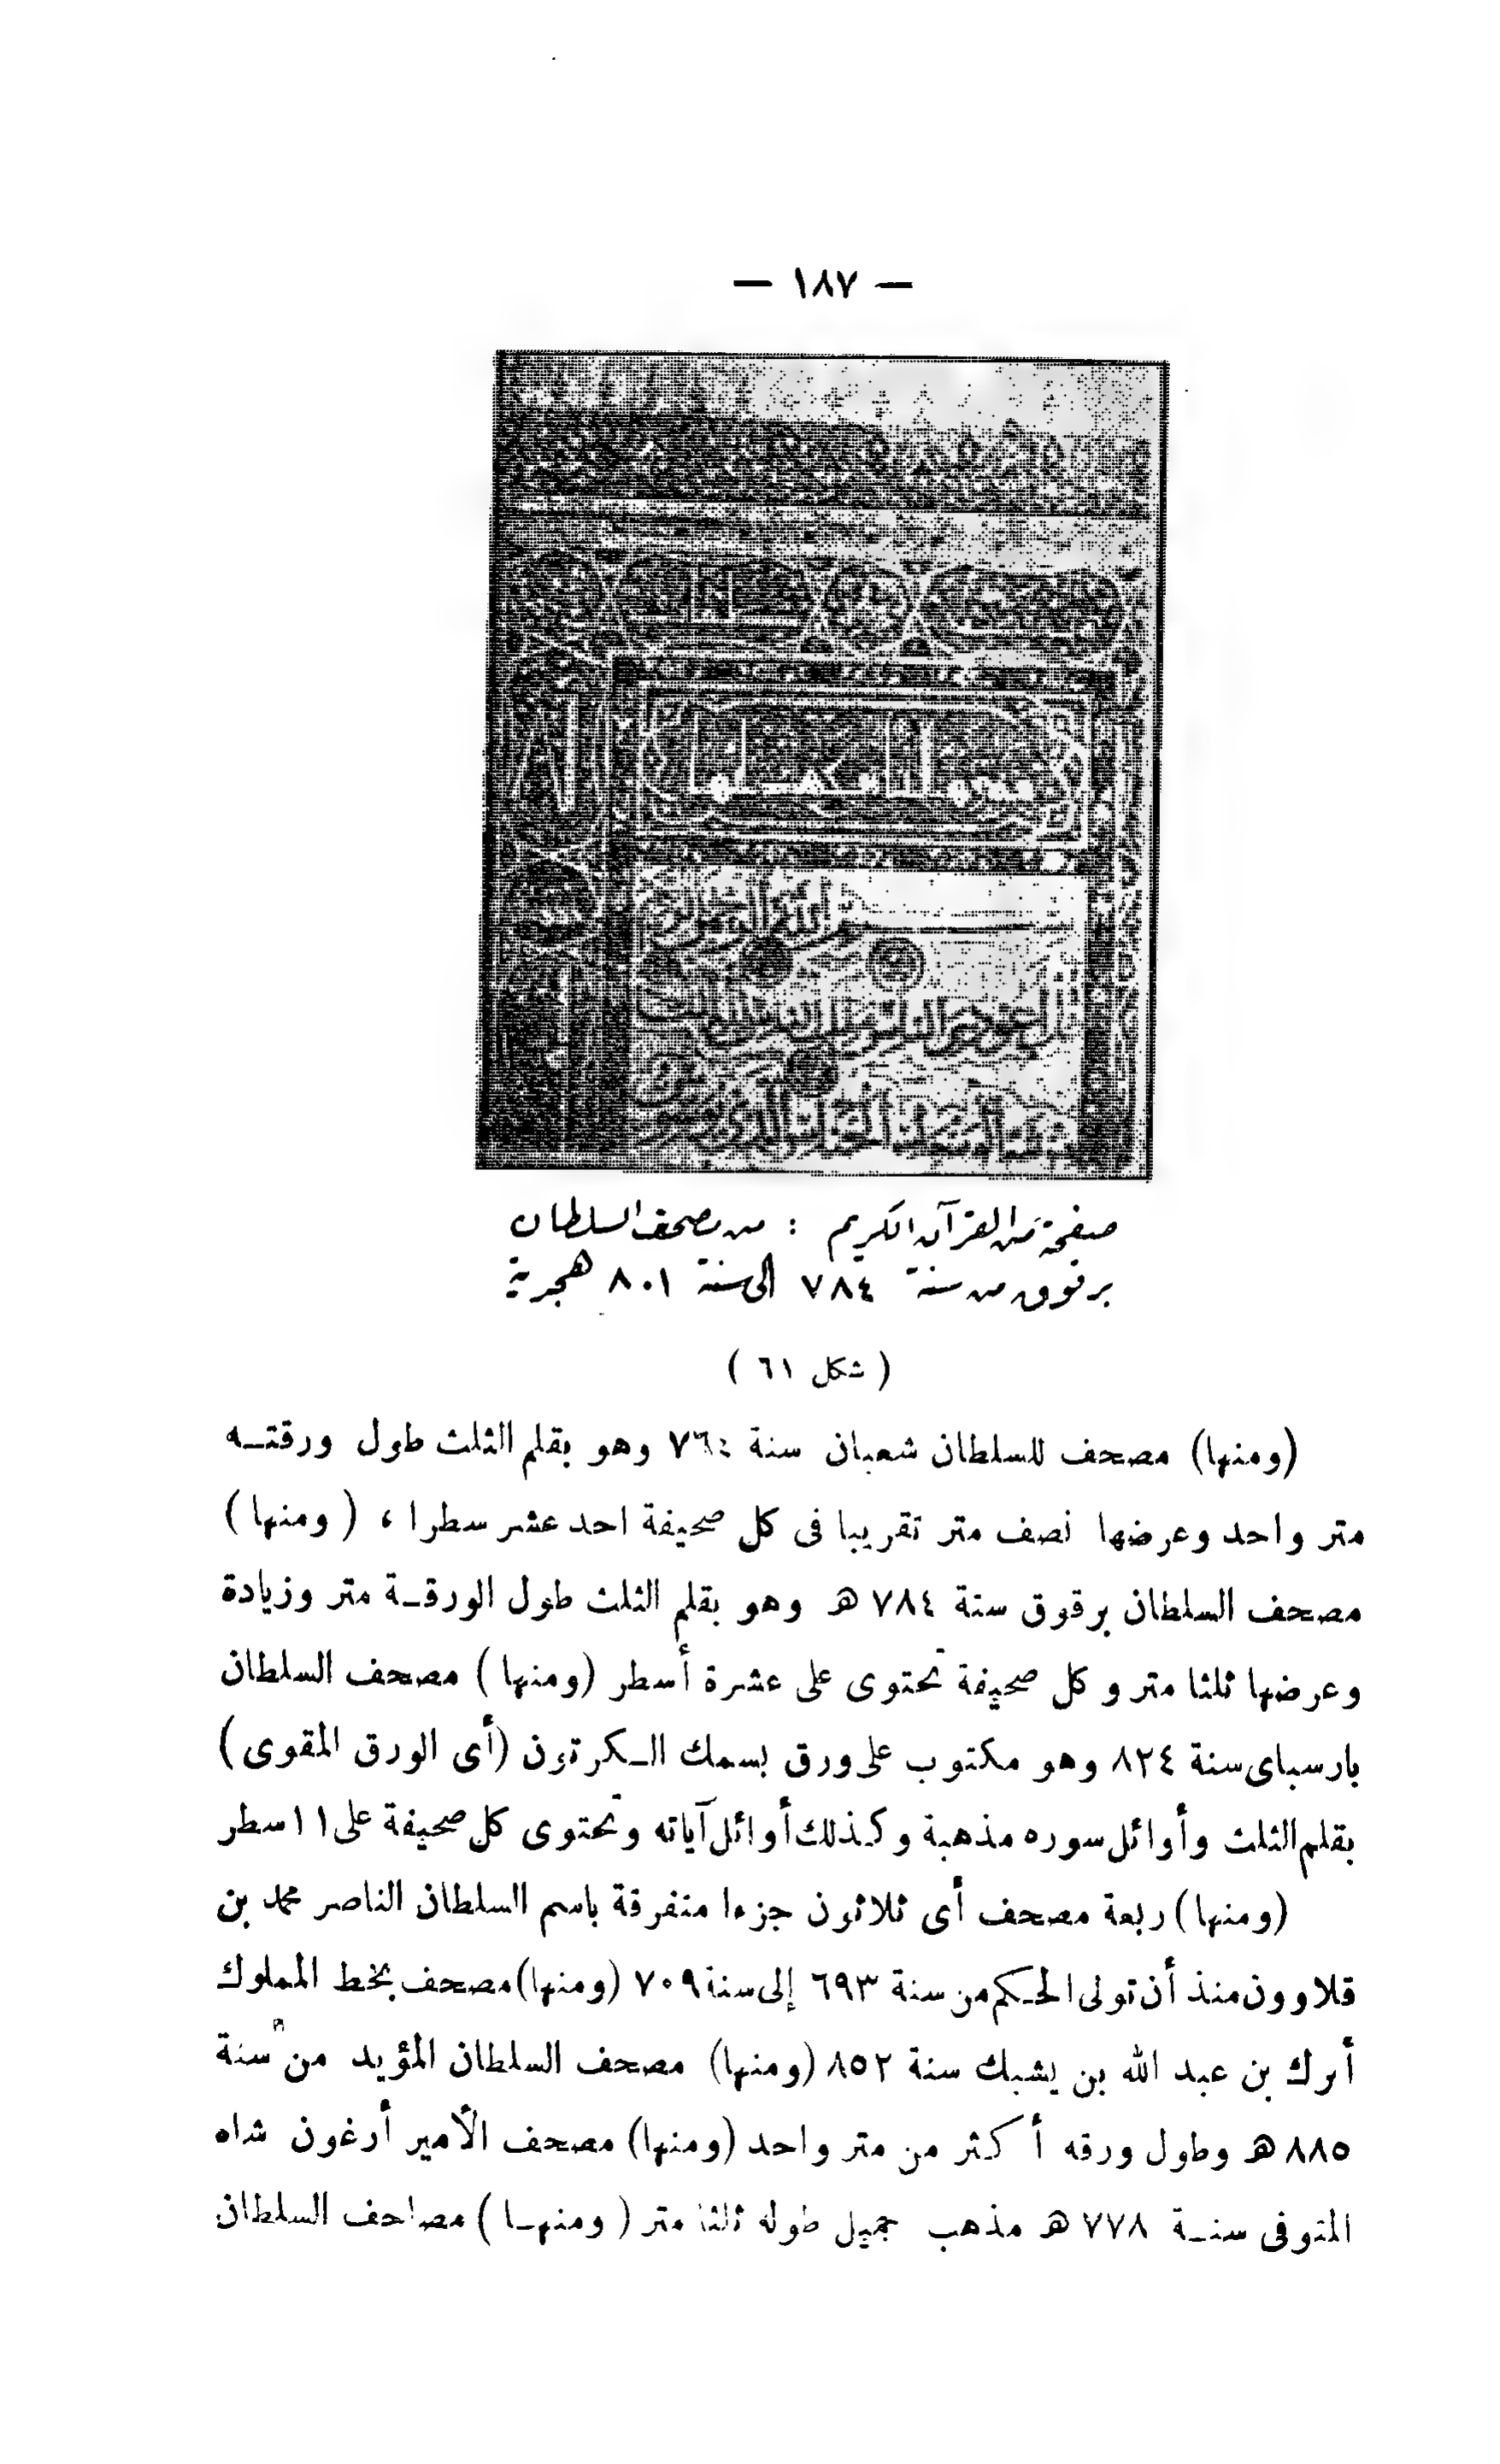 — ١٨٧ —
صفحة من القرآن الكريم : من مصحف السلطان
برقوق من سنة ٧٨٤ الى سنة ٨٠١ هجرية
( شكل ٦١ )
(ومنها) مصحف للسلطان شعبان سنة ٧٦٤ وهو بقلم الثلث طول ورقتـه
متر واحد وعرضها نصف متر تقريبا فى كل صحيفة احد عشر سطرا ، ( ومنها )
مصحف السلطان برقوق سنة ٧٨٤ هـ وهو بقلم الثلث طول الورقـة متر وزيادة
وعرضها ثلثا متر وكل صحيفة تحتوى على عشرة أسطر (ومنها ) مصحف السلطان
بارسباى سنة ٨٢٤ وهو مكتوب على ورق بسمك الـكرتون (أى الورق المقوى)
بقلم الثلث وأوائل سوره مذهبة وكذلك أوائل آياته وتحتوى كل صحيفة على ١١ سطر
(ومنها) ربعة مصحف أى ثلاثون جزءا متفرقة باسم السلطان الناصر محمد بن
قلاوون منذ أن تولى الحـكم من سنة ٦٩٣ إلى سنة ٧٠٩ (ومنها) مصحف بخط المملوك
أبرك بن عبد الله بن يشبك سنة ٨٥٢ (ومنها) مصحف السلطان المؤيد من سنة
٨٨٥ هـ وطول ورقه أكثر من متر واحد (ومنها) مصحف الأمير أرغون شاه
المتوفى سنـة ٧٧٨ هـ مذهب جميل طوله ثلثا متر ( ومنهـا ) مصاحف السلطان